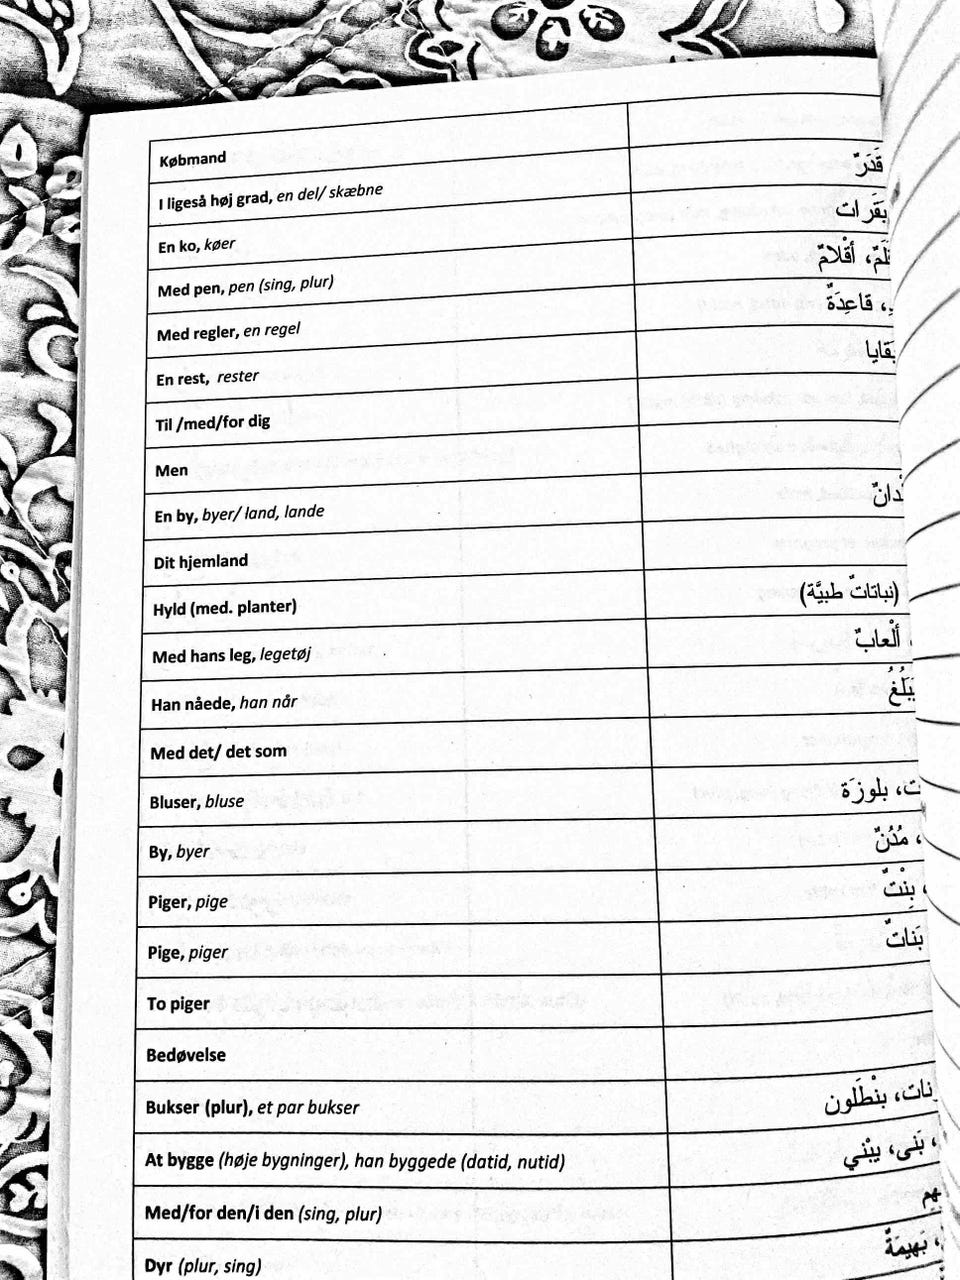 Købmand
I ligeså høj grad, en del/ skæbne قَدَرٌ
En ko, køer بقَرات
Med pen, pen (sing, plur) أقْلامٌ
Med regler, en regel قاعِدَةٌ
En rest, rester بَقايا
Til /med/for dig
Men
En by, byer/ land, lande
Dit hjemland
Hyld (med. planter) (نباتاتٌ طبيَّة)
Med hans leg, legetøj ألْعابٌ
Han nåede, han når
Med det/ det som
Bluser, bluse بلوزَة
By, byer مُدُنٌ
Piger, pige بِنْتٌ
Pige, piger بَنَاتٌ
To piger
Bedøvelse
Bukser (plur), et par bukser بنْطَلون
At bygge (høje bygninger), han byggede (datid, nutid) بَنَى، يبْني
Med/for den/i den (sing, plur)
Dyr (plur, sing) بَهيمَةٌ